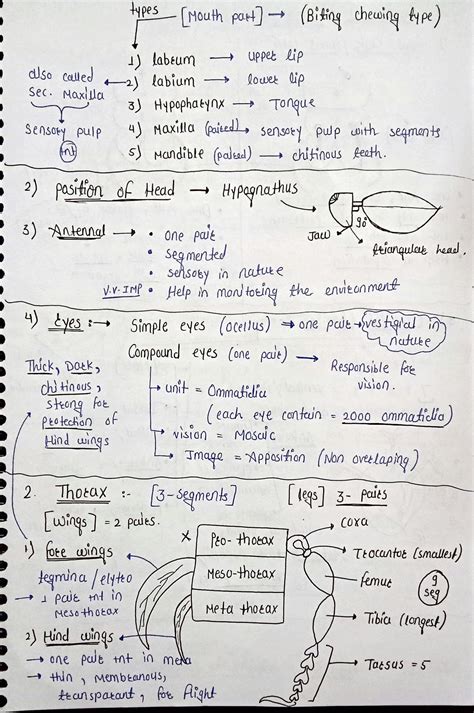 types
[Mouth part] → (Biting chewing type)
1) labrum → upper lip
also called
sec. Maxilla
2) labium → lower lip
3) Hypopharynx → Tongue
Sensory pulp
int
4) Maxilla (paired) → sensory pulp with segments
5) Mandible (paired) → chitinous teeth.
2) Position of Head → Hypognathus
90
Jaw
triangular head.
3) Antennal → • one pair
• segmented
• sensory in nature
V.V.IMP • Help in monitoring the environment
4) Eyes :→ Simple eyes (ocellus) → one pair → vestigial in
nature
Compound eyes (one pair) → Responsible for
vision.
Thick, Dark,
chitinous,
strong for
protection of
Hind wings
→ unit = Ommatidia
(each eye contain = 2000 ommatidia)
→ vision = Mosaic
→ Image = Apposition (Non overlaping)
2. Thorax :- [3-segments] [legs] 3- pairs
[wings] = 2 pairs.
1) fore wings
tegmina / elytro
→ 1 pair int in
Mesothorax
2) Hind wings
→ one pair int in meta
→ thin, membranous,
transparant, for flight
x
Pro-thorax
Meso-thorax
Meta thorax
coxa
Trocantor (smallest)
femur
9
seg
Tibia (longest)
Tarsus = 5